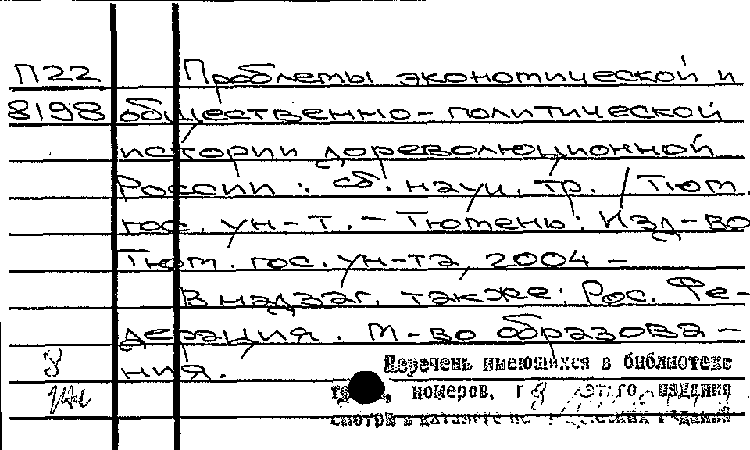 П22 Проблемы экономической и
8198 общественно-политической
истории дореволюционной
России: сб. науч. тр. / Тюм.
гос. ун-т. - Тюмень: Изд-во
Тюм. гос. ун-та, 2004 -
В надзаг. также: Рос. Фе-
дерация. М-во образова-
ния.
Перечень имеющихся в библиотеке
номеров, этого издания
смотри в каталоге